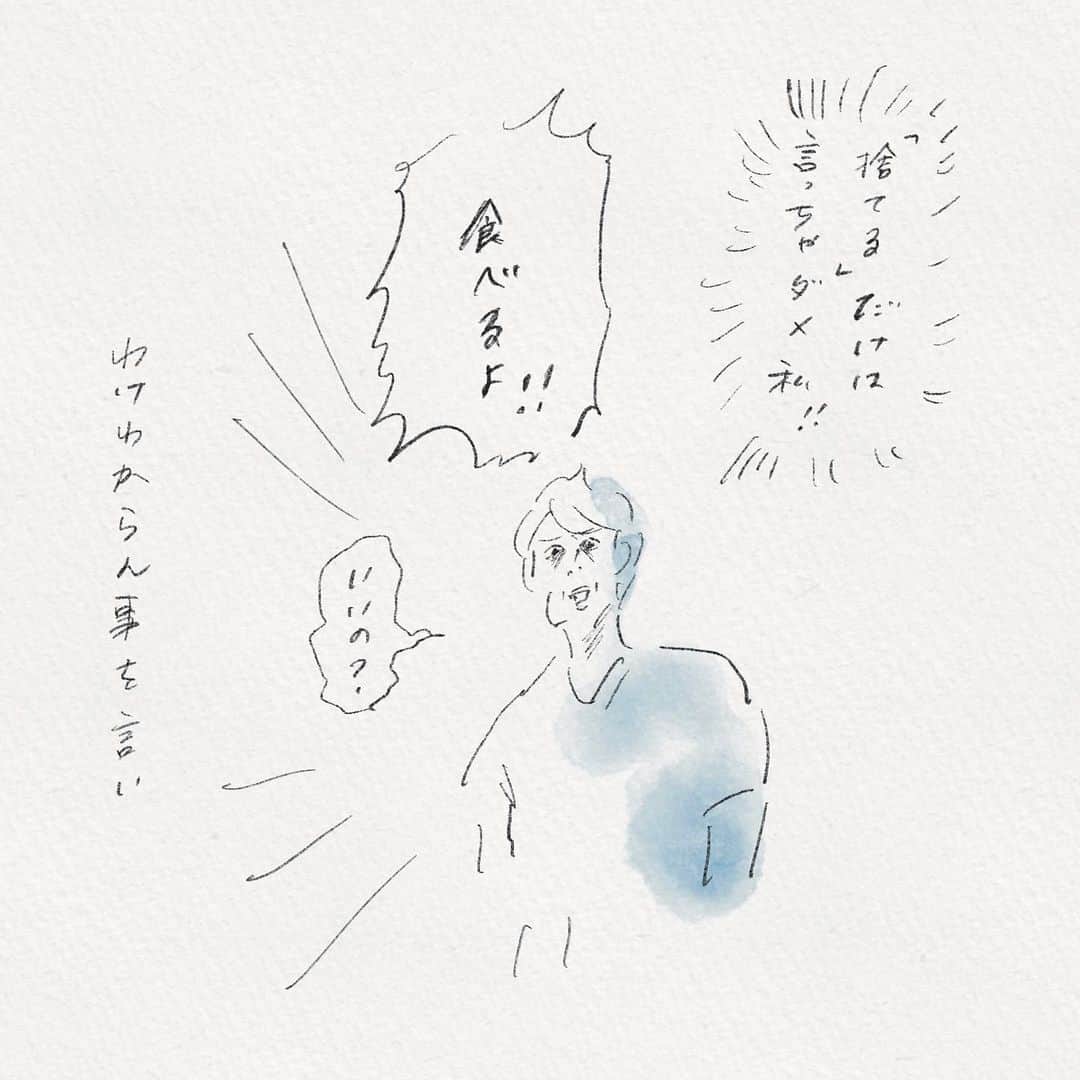 「捨てる」だけは
言っちゃダメ
私!!
食べるよ!!
いいの?
わけわからん事を言い